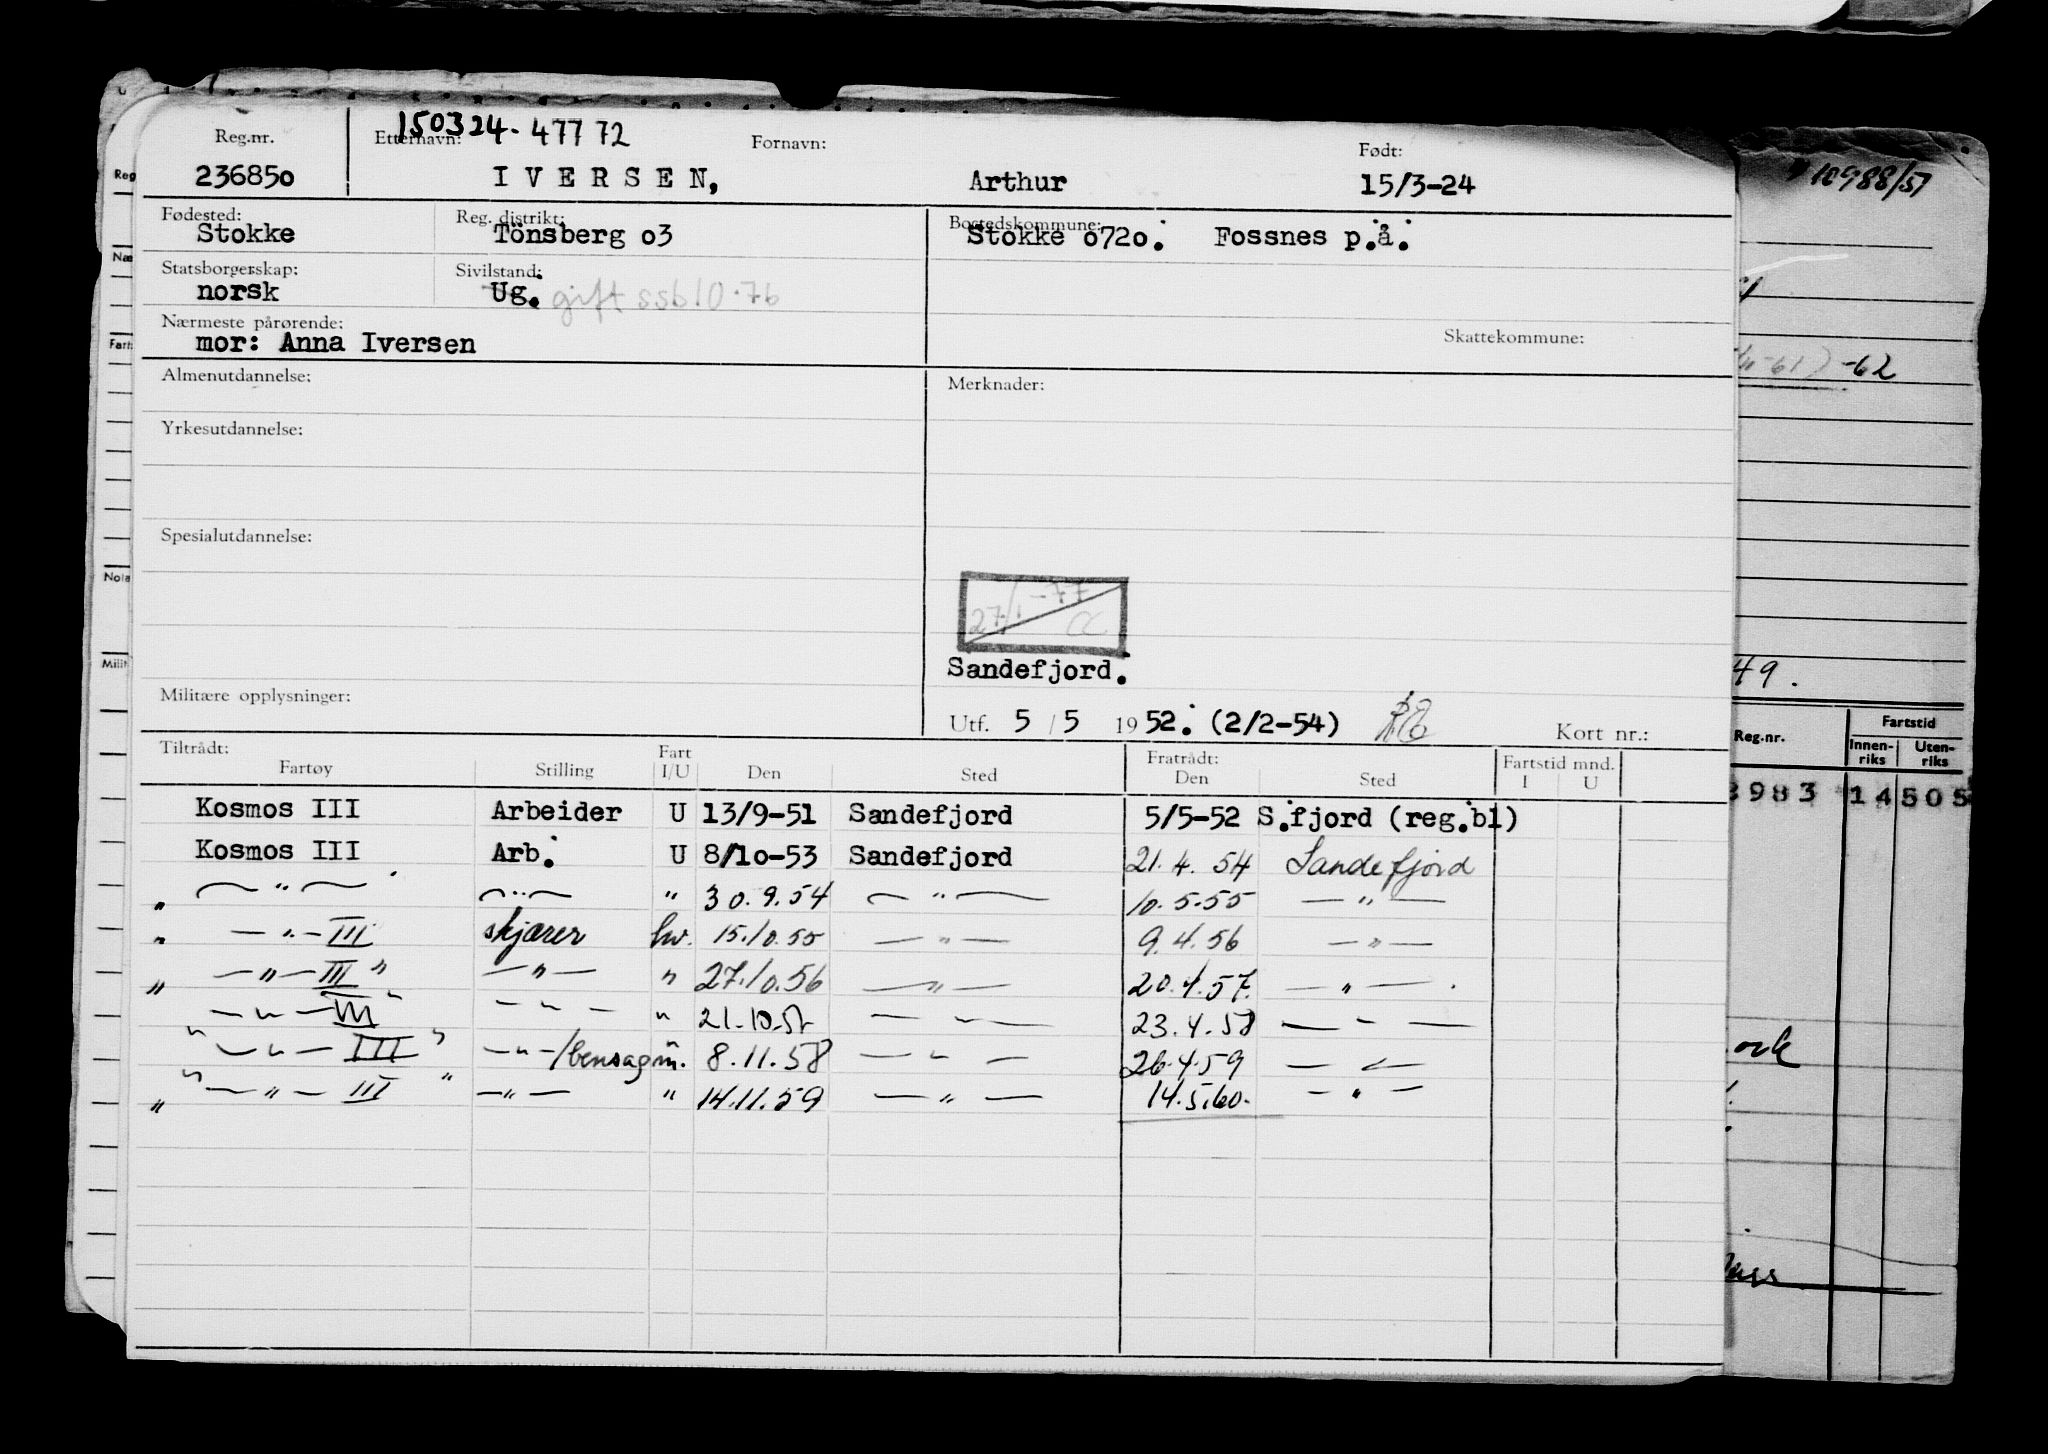 150324-47772
Reg.nr. Etternavn: Fornavn: Født:
236850 IVERSEN, Arthur 15/3-24
10988/51
Fødested: Reg. distrikt: Bostedskommune:
Stokke Tönsberg o3 Stokke o72o. Fossnes p.å.
Statsborgerskap: Sivilstand:
norsk Ug. gift ssb 10.76
Nærmeste pårørende: Skattekommune:
mor: Anna Iversen
-62
Almenutdannelse: Merknader:
Yrkesutdannelse:
Spesialutdannelse:
27/1-77
Sandefjord.
49.
Militære opplysninger:
Utf. 5 / 5 1952. (2/2-54) Kort nr.:
Reg.nr. Fartstid
Innen-riks Uten-riks
3983 14 505
Tiltrådt: Fart Fratrådt: Fartstid mnd.
Fartøy Stilling I/U Den Sted Den Sted I U
Kosmos III Arbeider U 13/9-51 Sandefjord 5/5-52 S.fjord (reg.bl)
Kosmos III Arb. U 8/1o-53 Sandefjord 21.4.54 Sandefjord
" — " — — " — " 30.9.54 — " — 10.5.55 — " —
" — " — III skjærer hv. 15.10.55 — " — 9.4.56 — " —
" — " — III " — " — " 27.10.56 — " — 20.4.57. — " —
— " — III " — " — " 21.10.57 — " — 23.4.58 — " —
" — " — III " — " —/bensagm. 8.11.58 — " — 26.4.59 — " —
" — " — III " — " — " 14.11.59 — " — 14.5.60. — " —